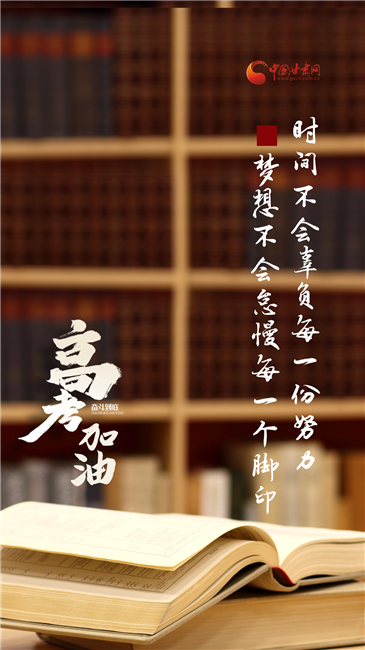 中国甘肃网
时间不会辜负每一份努力
梦想不会怠慢每一个脚印
高考加油
奋斗到底